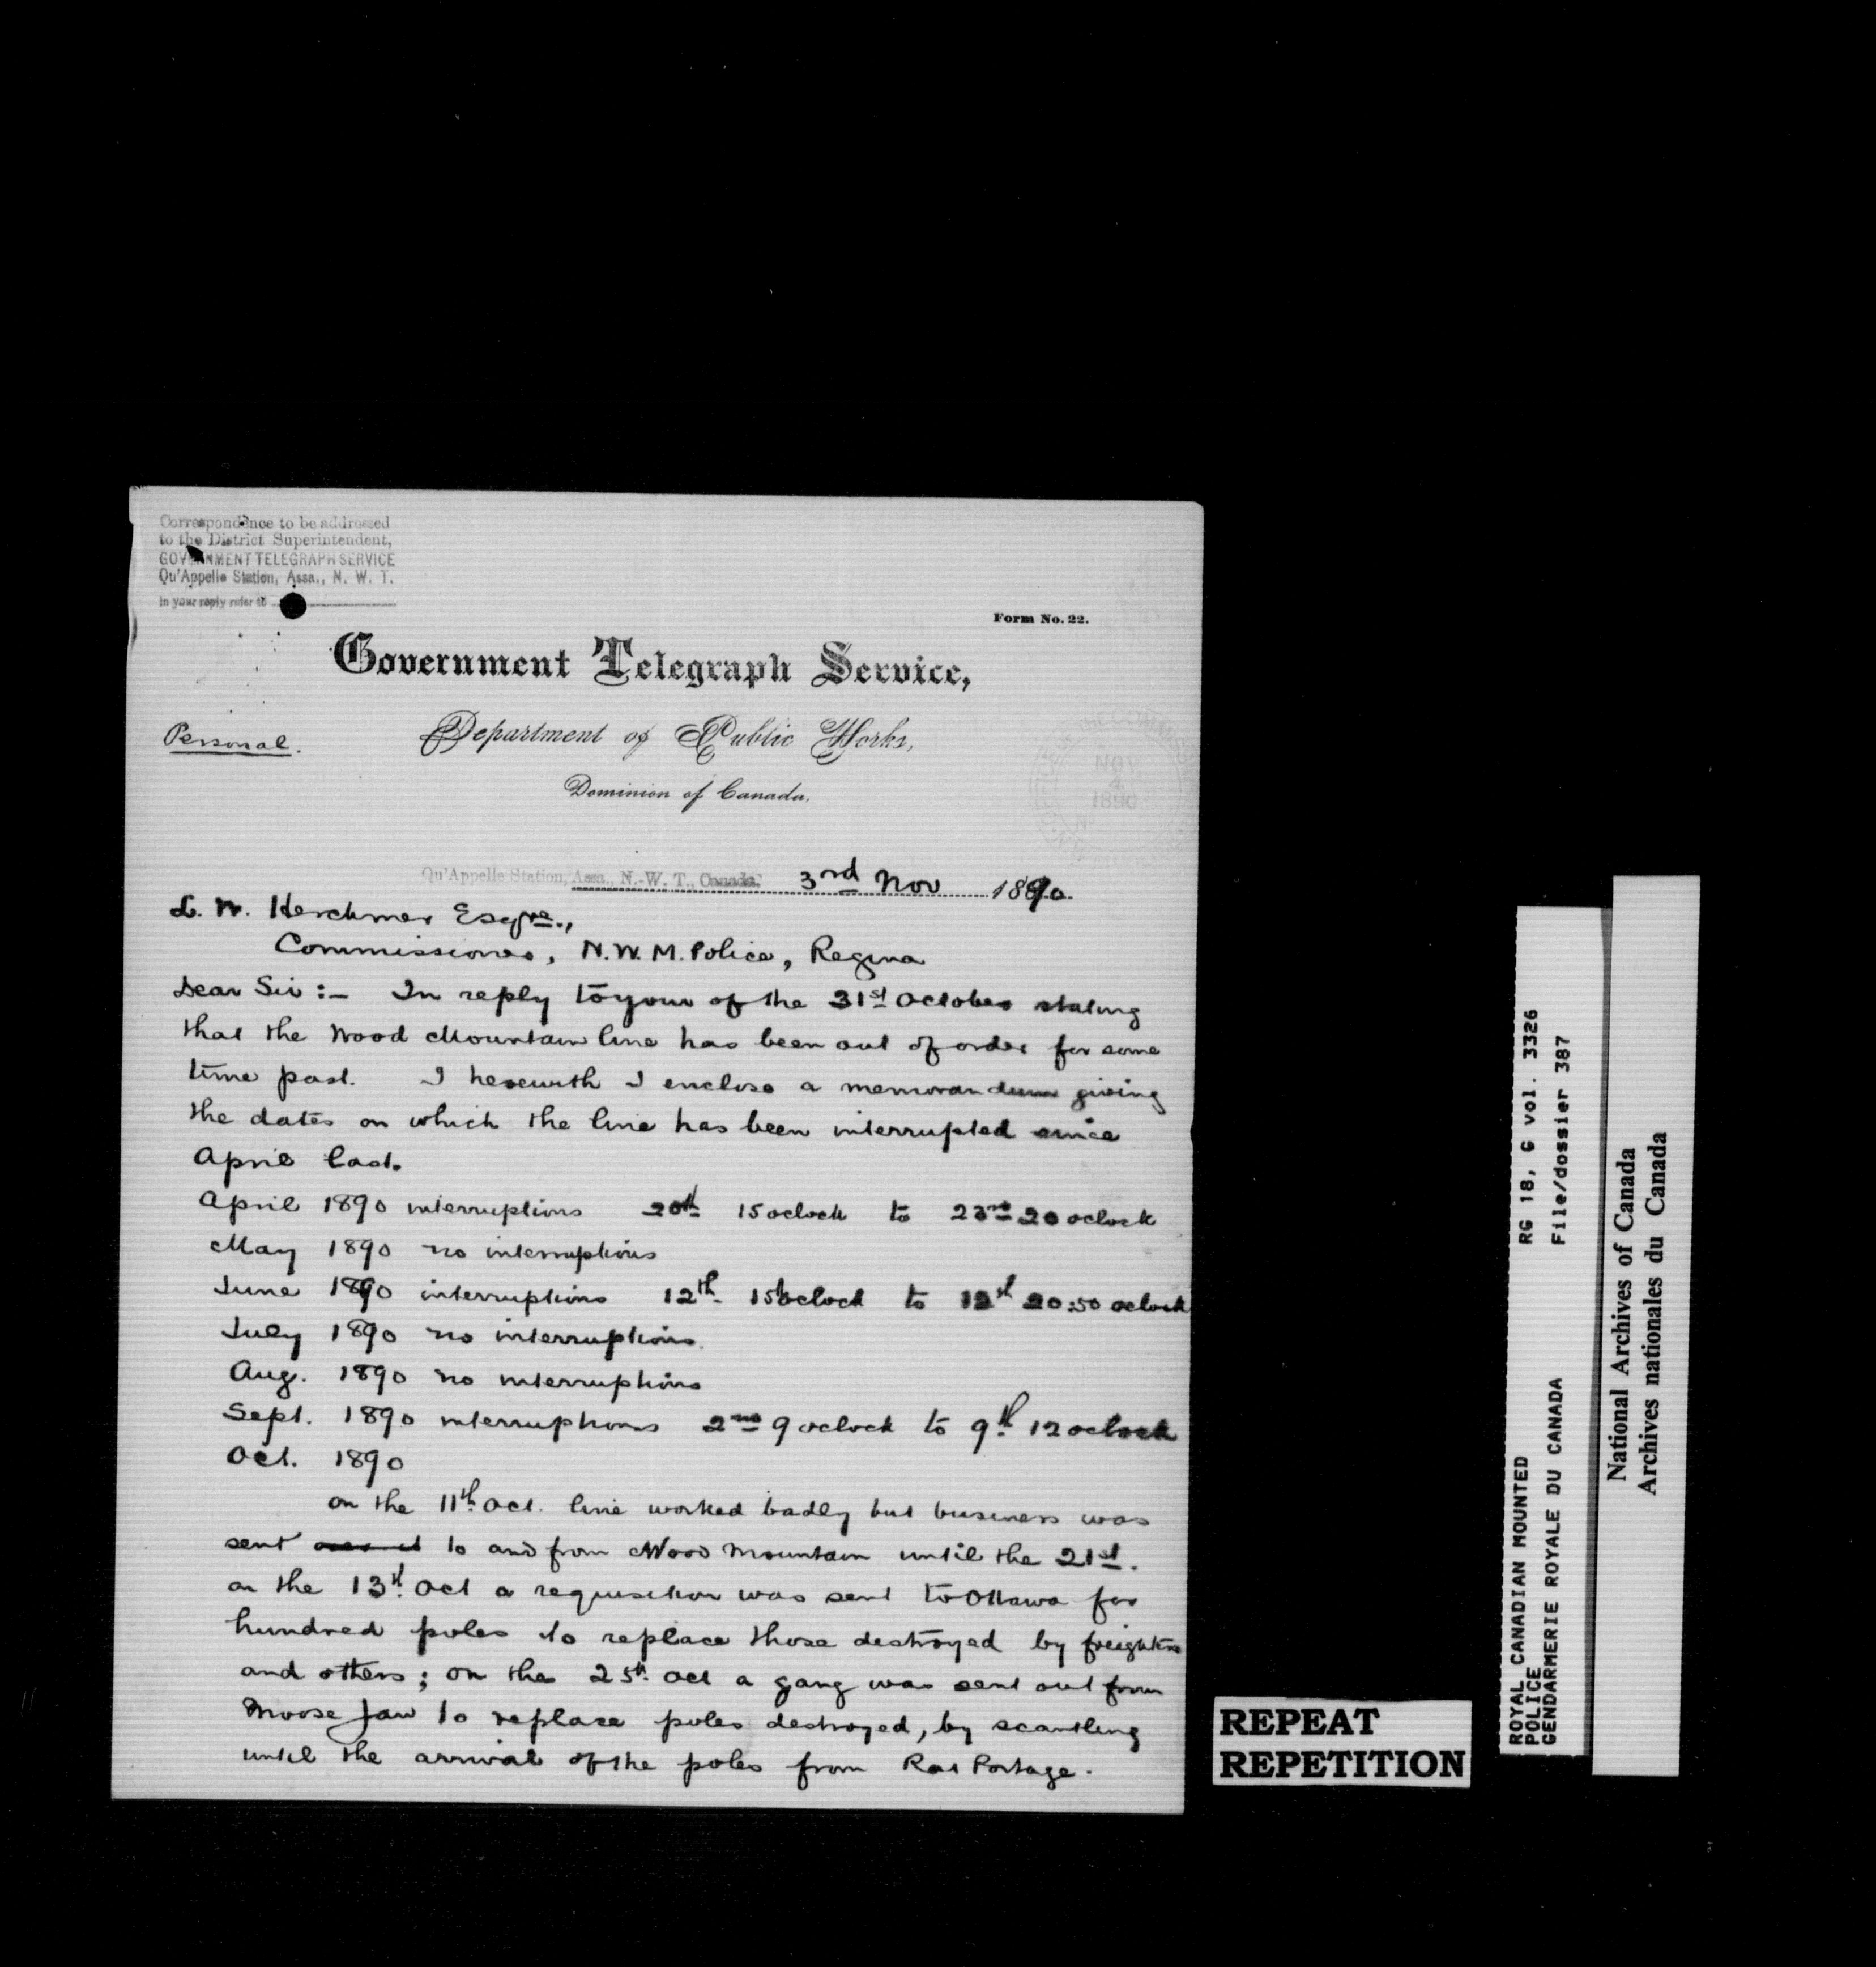 Correspondence to be addressed
to the District Superintendent,
GOVERNMENT TELEGRAPH SERVICE
Qu'Appelle Station, Assa., N. W. T.
In your reply refer to
Form No. 22.
Government Telegraph Service,
Personal.
Department of Public Works,
Dominion of Canada.
OFFICE OF THE COMMISSIONER
NOV
4
1890
No
Qu'Appelle Station, Assa., N.-W. T., Canada. 3rd Nov 1890.
L. W. Herchmer Esqre.,
Commissioner, N.W.M. Police, Regina
Dear Sir :- In reply to your of the 31st October stating
that the Wood Mountain line has been out of order for some
time past. I herewith I enclose a memorandum giving
the dates on which the line has been interrupted since
April last.
April 1890 interruptions 20th 15 oclock to 23rd 20 oclock
May 1890 no interruptions
June 1890 interruptions 12th 15 oclock to 12th 20:50 oclock
July 1890 no interruptions.
Aug. 1890 no interruptions
Sept. 1890 interruptions 2nd 9 oclock to 9th 12 oclock
Oct. 1890
on the 11th Oct. line worked badly but business was
sent over it to and from Wood Mountain until the 21st.
on the 13th Oct a requisition was sent to Ottawa for
hundred poles to replace those destroyed by freighters
and others; on the 25th Oct a gang was sent out from
Moose Jaw to replace poles destroyed, by scantling
until the arrival of the poles from Rat Portage.
REPEAT
REPETITION
ROYAL CANADIAN MOUNTED
POLICE
GENDARMERIE ROYALE DU CANADA
RG 18, G vol. 3326
File/dossier 387
National Archives of Canada
Archives nationales du Canada